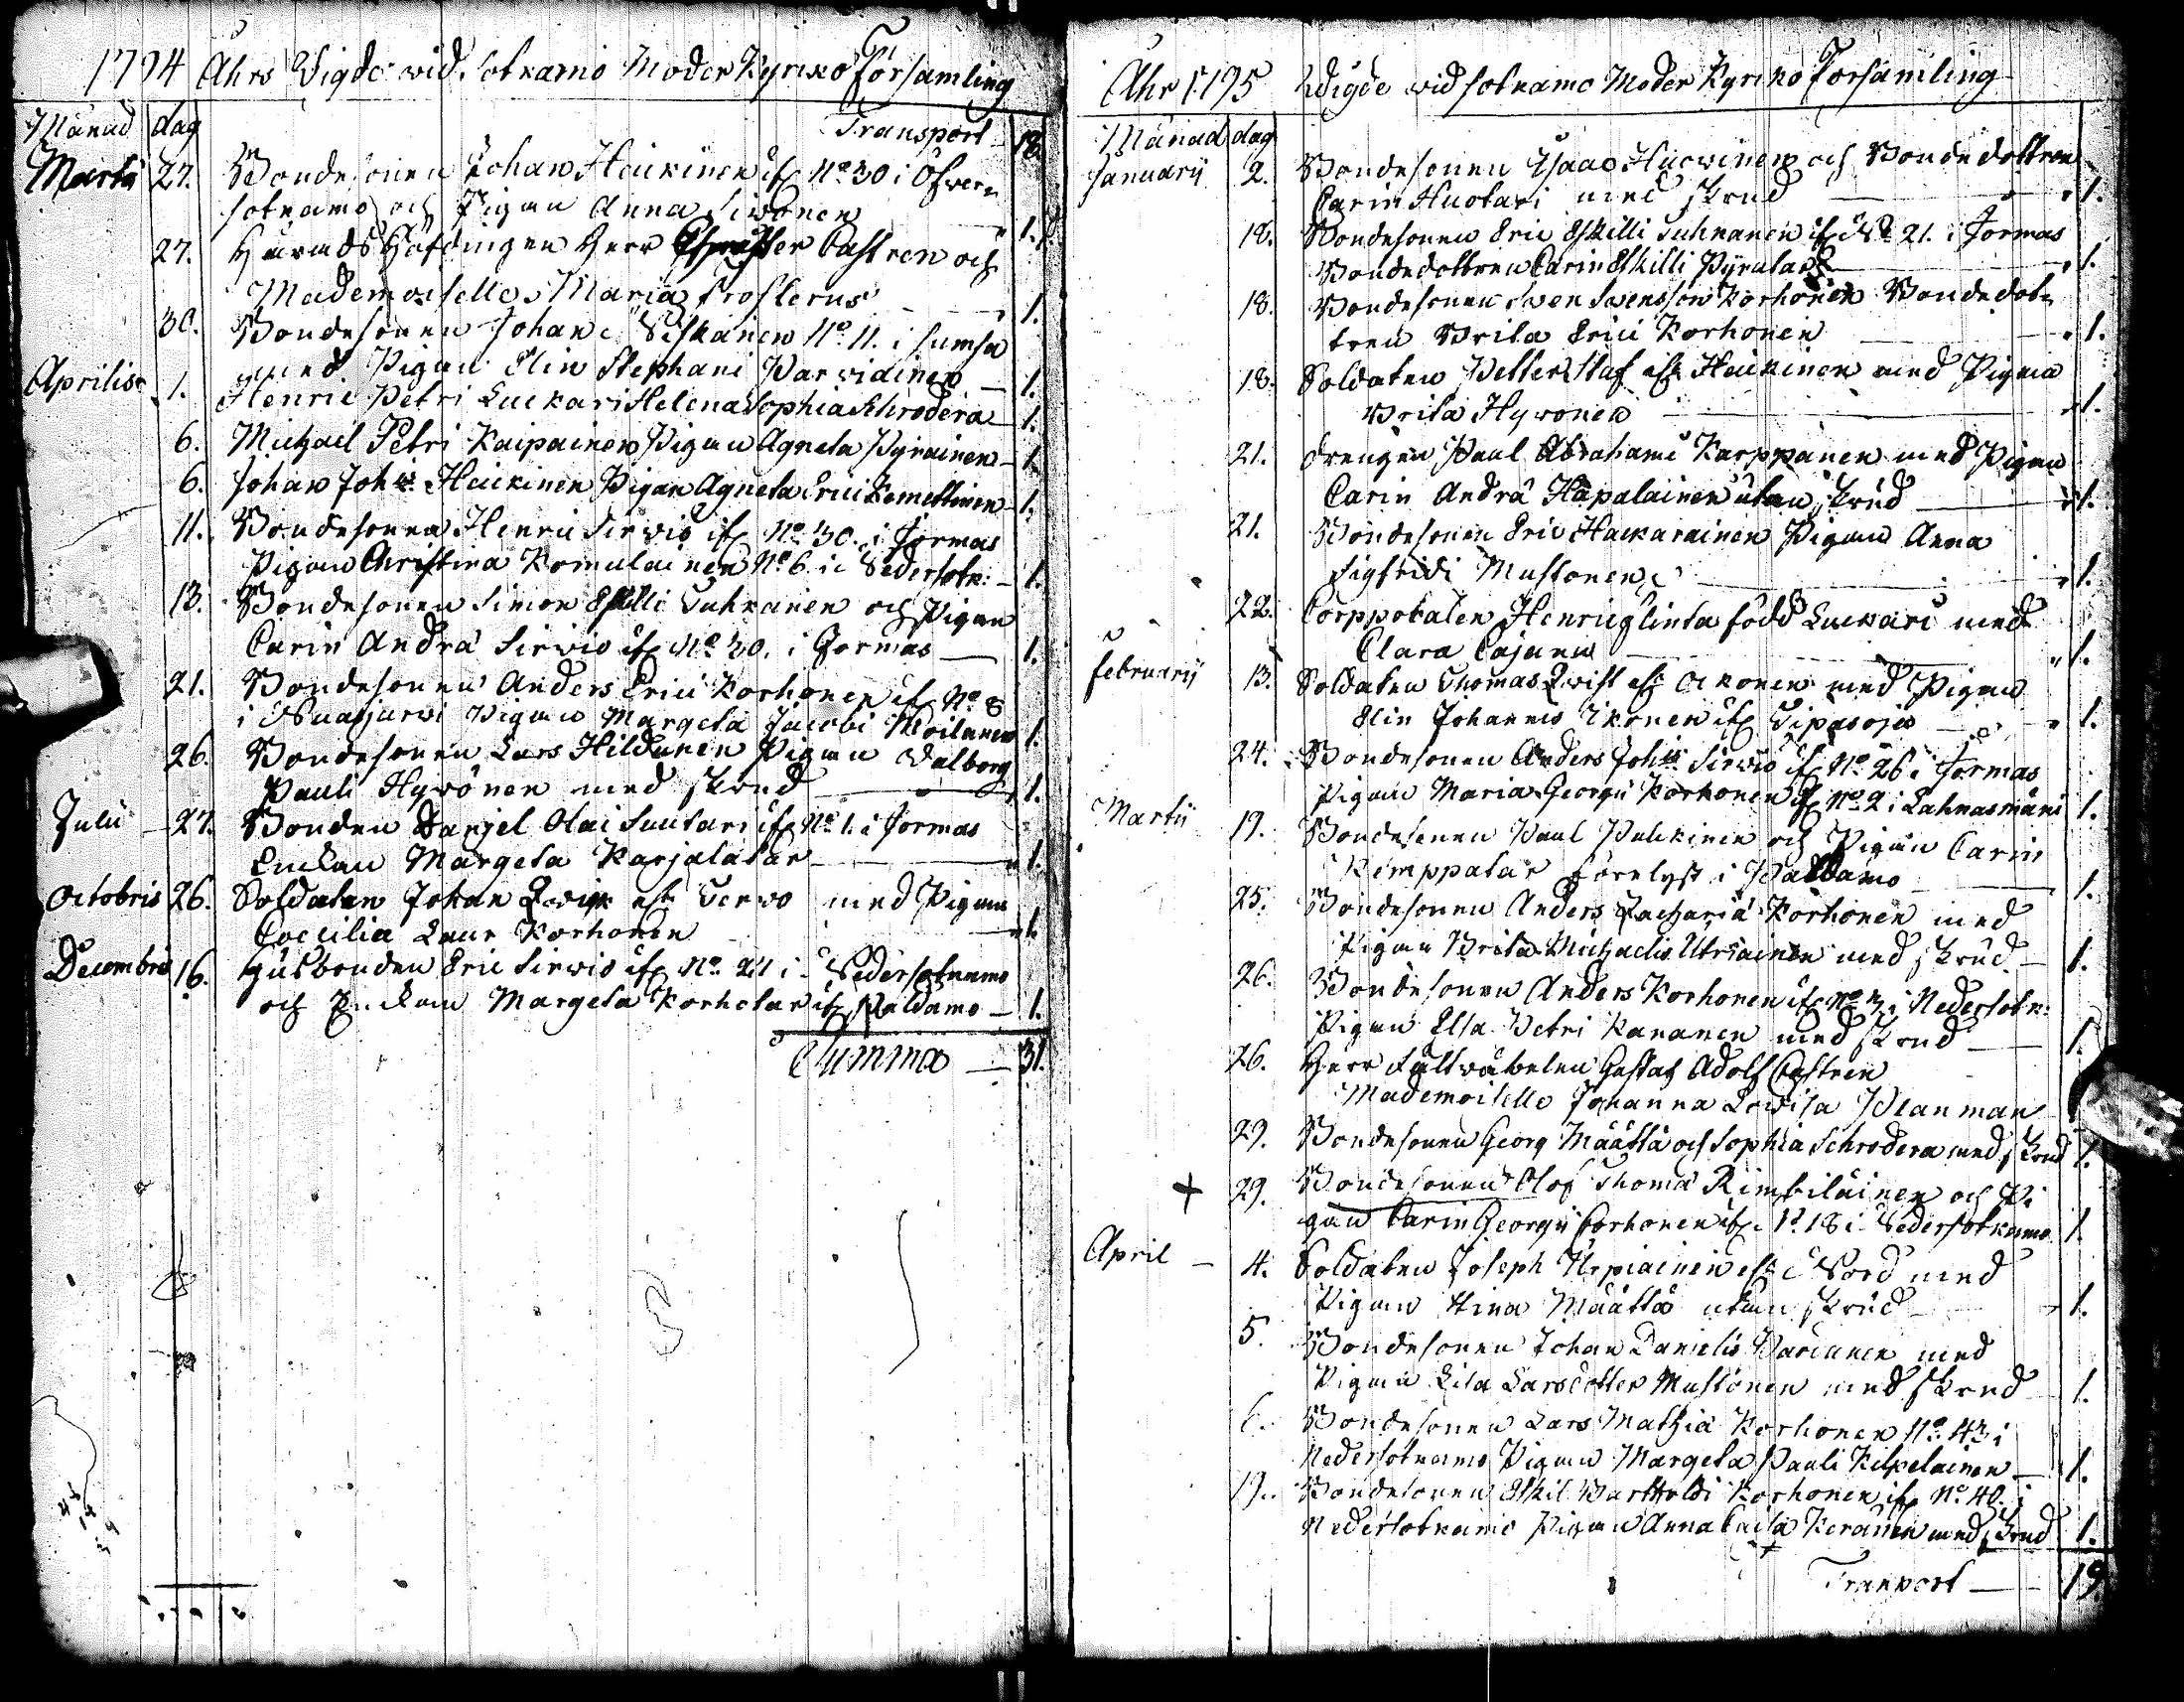 1794 Åhrs Vigde wid Sotkamo Moder Kyrko Församling
Månad dag Transport 18
Martii 27. Bondesonen Johan Heikinen ifr No 30 i Öfwer
sotkamo och Pigan Anna Siwonen 1.
27. Härads Höfdingen Herr Castren och
Mademoiselle Maria Frosterus 1.
30. Bondesonen Johan Piskainen No 11. i Sumsa
med Pigan Elin Stephani Parwiainen 1.
Aprilis 1. Henric Petri Luckari Helena Sophia Schrodera 1.
6. Michael Petri Kaipainen Pigan Agneta Pyrainen 1.
6. Johan Joh:s Heikinen Pigan Agneta Erici Kemettinen 1.
11. Bondesonen Henric Sirwiö ifr No 30. i Jormas
Pigan Christina Komulainen No 6 i Nedersotk: 1.
13. Bondesonen Simon Eskilli Tuhkanen och Pigan
Carin Andræ Sirwiö ifr No 30. i Jormas 1.
21. Bondesonen Anders Erici Korhonen ifr No 8
i Nuasjärwi Pigan Margeta Jacobi Moilanen 1.
26. Bondesonen Lars Hildunen Pigan Walborg
Pauli Hywönen med skrud 1.
Julii 27. Bonden Danjel Olai Suutari ifr No 1. i Jormas
Enckan Margeta Karjalatar 1.
Octobris 26. Soldaten Johan Qwick eft Terwo med Pigan
Coecilia Laur Korhonen 1.
Decembris 16. Husbonden Eric Sirwiö ifr No 24 i Nedersotkamo
och Enckan Margeta Korhotar ifr Paldamo 1.
Summa 31.
Åhr 1795 Wigde wid Sotkamo Moder Kyrko Församling
Månad dag
Januarii 2. Bondesonen Isaac Huowinen och Bondedottren
Carin Huotari med skrud 1.
18. Bondesonen Eric Eskilli Tuhkanen ifr No 21. i Jormas
Bondedottren Carin Eskilli Pyykatar 1.
18. Bondesonen Swen Swensson Korhonen Bondedot
tren Brita Erici Korhonen 1.
18. Soldaten Petter Staf eft Heikinen med Pigan
Brita Hywonen 1.
21. Drengen Paul Abrahami Karppanen med Pigan
Carin Andræ Häpälainen utan skrud 1.
21. Bondesonen Eric Hackarainen Pigan Anna
Sigfridi Mustonen 1.
22. Corpporalen Henric Flinta född Luckari med
Clara Cajanus 1.
Februarii 13. Soldaten Thomas Qwist eft Ockonen med Pigan
Elin Johannis Ikonen ifr Tipasoja 1.
24. Bondesonen Anders Joh:s Sirwiö ifr No 26 i Jormas
Pigan Maria Georgii Korhonen ifr No 2 i Lahnasmäki 1.
Martii 19. Bondesonen Paul Pulckinen och Pigan Carin
Kemppatar förelyst i Paldamo 1.
25. Bondesonen Anders Zachariæ Korhonen med
Pigan Brita Michaelis Utriainen med skrud 1.
26. Bondesonen Anders Korhonen ifr No i Nedersotk:
Pigan Elsa Petri Kananen med skrud 1.
26. Herr Fältwäbelen Gustaf Adolf Castren
Mademoiselle Johanna Lowisa Planman
29. Bondesonen Georg Määttä och Sophia Schrodera med skrud 1.
+ 29. Bondesonen Olof Thomæ Rimbiläinen och Pi
gan Carin Georgii Corhonen ifr No 18 i Nedersotkamo 1.
April 4. Soldaten Joseph Urpiainen eft Nord med
Pigan Stina Määttä utan skrud 1.
5. Bondesonen Johan Danielis Parianen med
Pigan Lisa Larsdotter Mustonen med skrud 1.
6. Bondesonen Lars Mathiæ Korhonen No 43 i
Nedersotkamo Pigan Margeta Pauli Kilpelainen 1.
19. Bondesonen Eskil Bartholdi Korhonen ifr No 40. i
Nedersotkamo Pigan Anna Caisa Keranen med skrud 1.
Transport 19